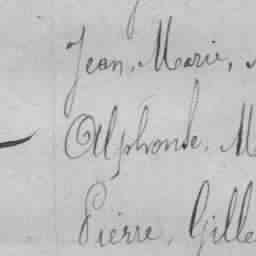 Jean, Marie,
Alphonse, M
Pierre, Gille